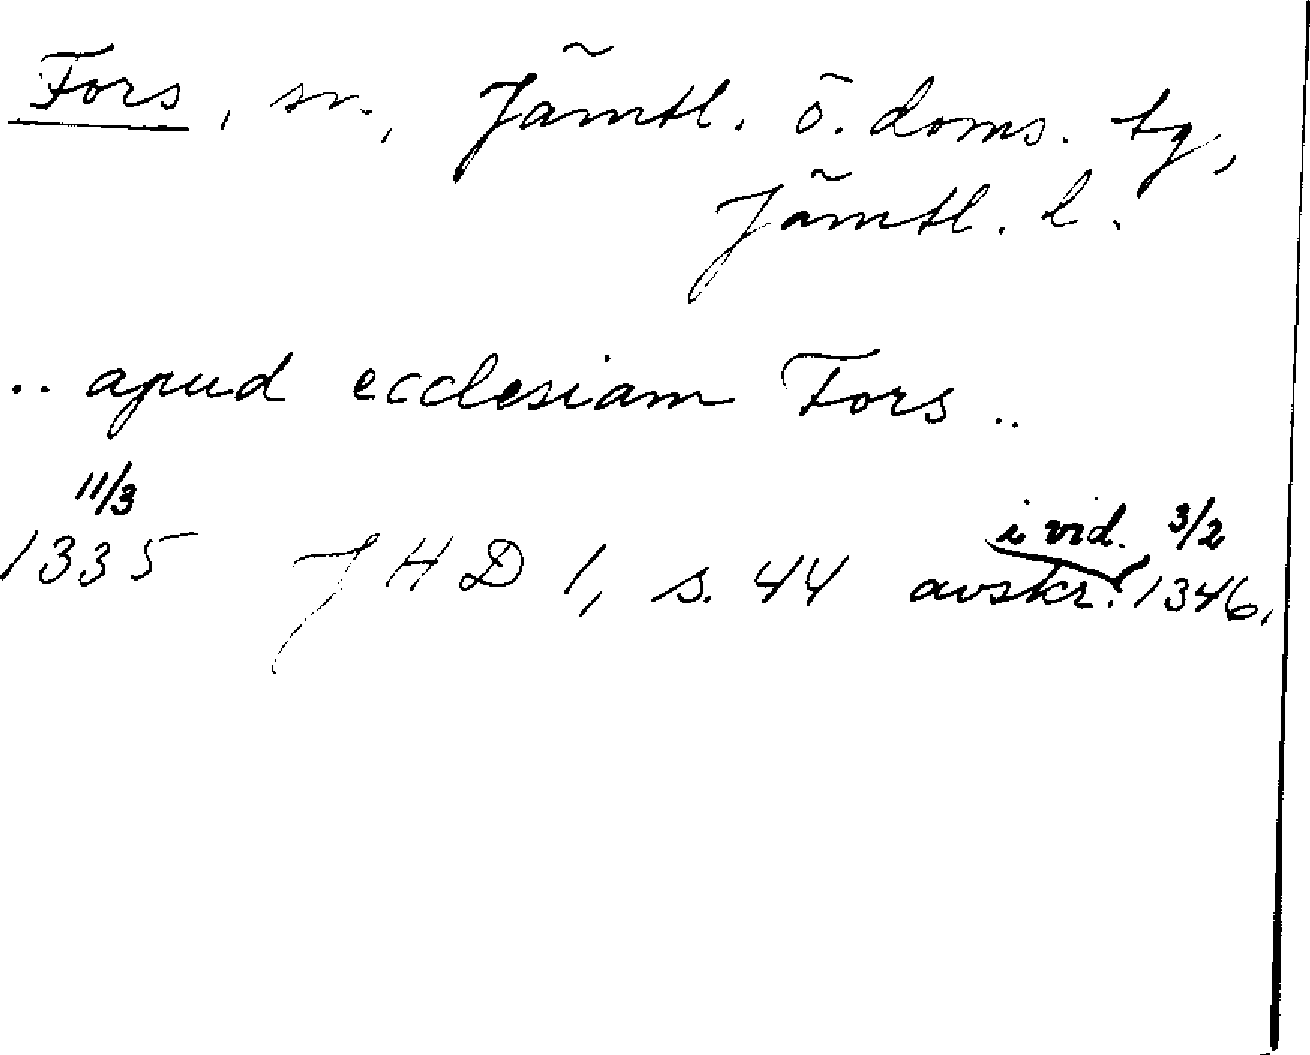 Fors, sn., Jämtl. ö. doms. tg,
Jämtl. l.
.. apud ecclesiam Fors ..
11/3
1335 JHD 1, s. 44 avskr. i vid. 3/2 1346.